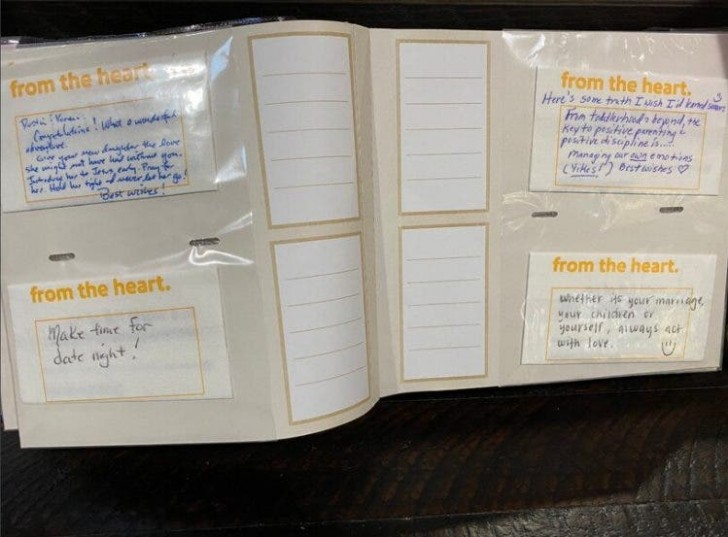 from the heart
Congratulations! What a wonderful
adventure!
Give your new daughter the love
she might not have had without you.
her to Jesus, early. Pray for
her. Hold her tight and never let her go!
Best wishes!
from the heart.
Make time for
date night!
from the heart.
Here's some truth I wish I'd learned sooner
From toddlerhood & beyond, the
key to positive parenting &
positive discipline is....
managing our own emotions
(Yikes!) Best wishes ♡
from the heart.
Whether its your marriage,
your children or
yourself, always act
with love.